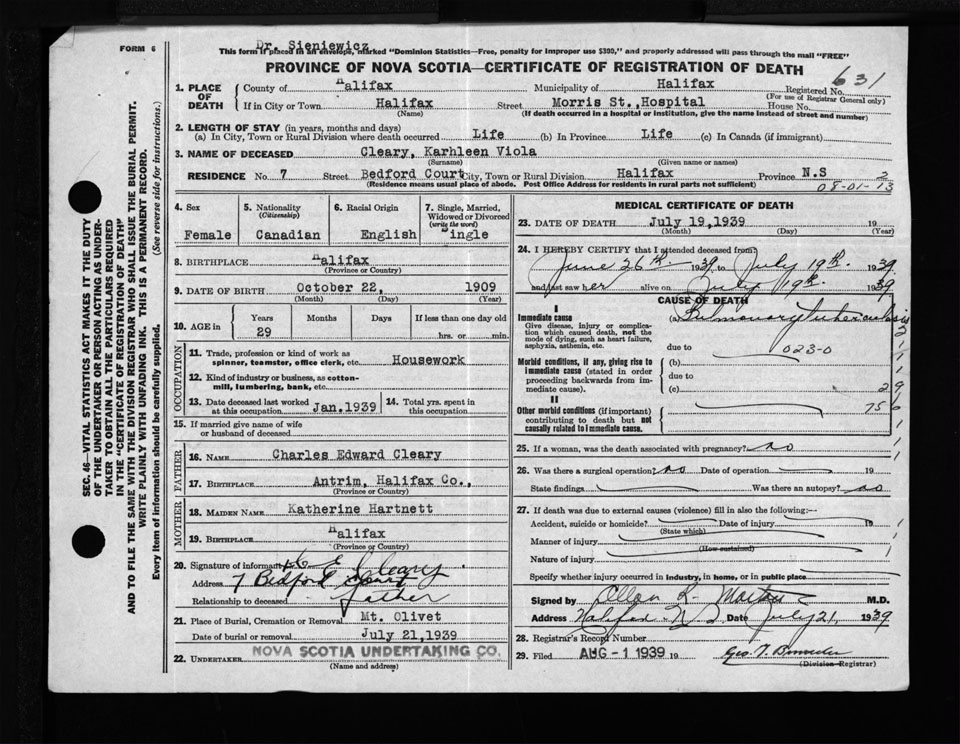 Dr. Sieniewicz
FORM 6
This form if placed in an envelope, marked "Dominion Statistics—Free, penalty for improper use $300," and properly addressed will pass through the mail "FREE"
PROVINCE OF NOVA SCOTIA—CERTIFICATE OF REGISTRATION OF DEATH
631
1. PLACE OF DEATH
County of Halifax Municipality of Halifax Registered No.
(For use of Registrar General only)
If in City or Town Halifax Street Morris St., Hospital House No.
(Name) (If death occurred in a hospital or institution, give the name instead of street and number)
2. LENGTH OF STAY (in years, months and days)
(a) In City, Town or Rural Division where death occurred Life (b) In Province Life (c) In Canada (if immigrant)
3. NAME OF DECEASED Cleary, Karhleen Viola
(Surname) (Given name or names)
RESIDENCE No. 7 Street Bedford Court City, Town or Rural Division Halifax Province N.S 2
(Residence means usual place of abode. Post Office Address for residents in rural parts not sufficient) 08-01-13
4. Sex
Female
5. Nationality
(Citizenship)
Canadian
6. Racial Origin
English
7. Single, Married, Widowed or Divorced
(write the word)
Single
8. BIRTHPLACE Halifax
(Province or Country)
9. DATE OF BIRTH October 22, 1909
(Month) (Day) (Year)
10. AGE in
Years Months Days If less than one day
29 hrs. or min.
OCCUPATION
11. Trade, profession or kind of work as spinner, teamster, office clerk, etc. Housework
12. Kind of industry or business, as cotton-mill, lumbering, bank, etc.
13. Date deceased last worked at this occupation Jan.1939
14. Total yrs. spent in this occupation
15. If married give name of wife or husband of deceased
FATHER
16. NAME Charles Edward Cleary
17. BIRTHPLACE Antrim, Halifax Co.,
(Province or Country)
MOTHER
18. MAIDEN NAME Katherine Hartnett
19. BIRTHPLACE Halifax
(Province or Country)
20. Signature of informant C E Cleary
Address 7 Bedford Court
Relationship to deceased father
21. Place of Burial, Cremation or Removal Mt. Olivet
Date of burial or removal July 21,1939
22. UNDERTAKER NOVA SCOTIA UNDERTAKING CO.
(Name and address)
MEDICAL CERTIFICATE OF DEATH
23. DATE OF DEATH July 19,1939 19
(Month) (Day) (Year)
24. I HEREBY CERTIFY that I attended deceased from
June 26th 1939, to July 19th 1939
and last saw her alive on July 19th 1939
CAUSE OF DEATH
I
Immediate cause (a) Pulmonary Tuberculosis
Give disease, injury or complication which caused death, not the mode of dying, such as heart failure, asphyxia, asthenia, etc.
due to 023-0
Morbid conditions, if any, giving rise to immediate cause (stated in order proceeding backwards from immediate cause).
(b)
due to
(c) 29
II
Other morbid conditions (if important) contributing to death but not causally related to immediate cause. 756
25. If a woman, was the death associated with pregnancy? no
26. Was there a surgical operation? no Date of operation 19
State findings Was there an autopsy? no
27. If death was due to external causes (violence) fill in also the following:—
Accident, suicide or homicide? Date of injury 19
(State which)
Manner of injury
(How sustained)
Nature of injury
Specify whether injury occurred in industry, in home, or in public place
Signed by Allan R. Morton M.D.
Address Halifax N S Date July 21, 1939
28. Registrar's Record Number
29. Filed AUG -1 1939 19
(Division Registrar)
SEC. 46—VITAL STATISTICS ACT MAKES IT THE DUTY
OF THE UNDERTAKER OR PERSON ACTING AS UNDER-
TAKER TO OBTAIN ALL THE PARTICULARS REQUIRED
IN THE "CERTIFICATE OF REGISTRATION OF DEATH"
AND TO FILE THE SAME WITH THE DIVISION REGISTRAR WHO SHALL ISSUE THE BURIAL PERMIT.
WRITE PLAINLY WITH UNFADING INK. THIS IS A PERMANENT RECORD.
Every item of information should be carefully supplied. (See reverse side for instructions.)